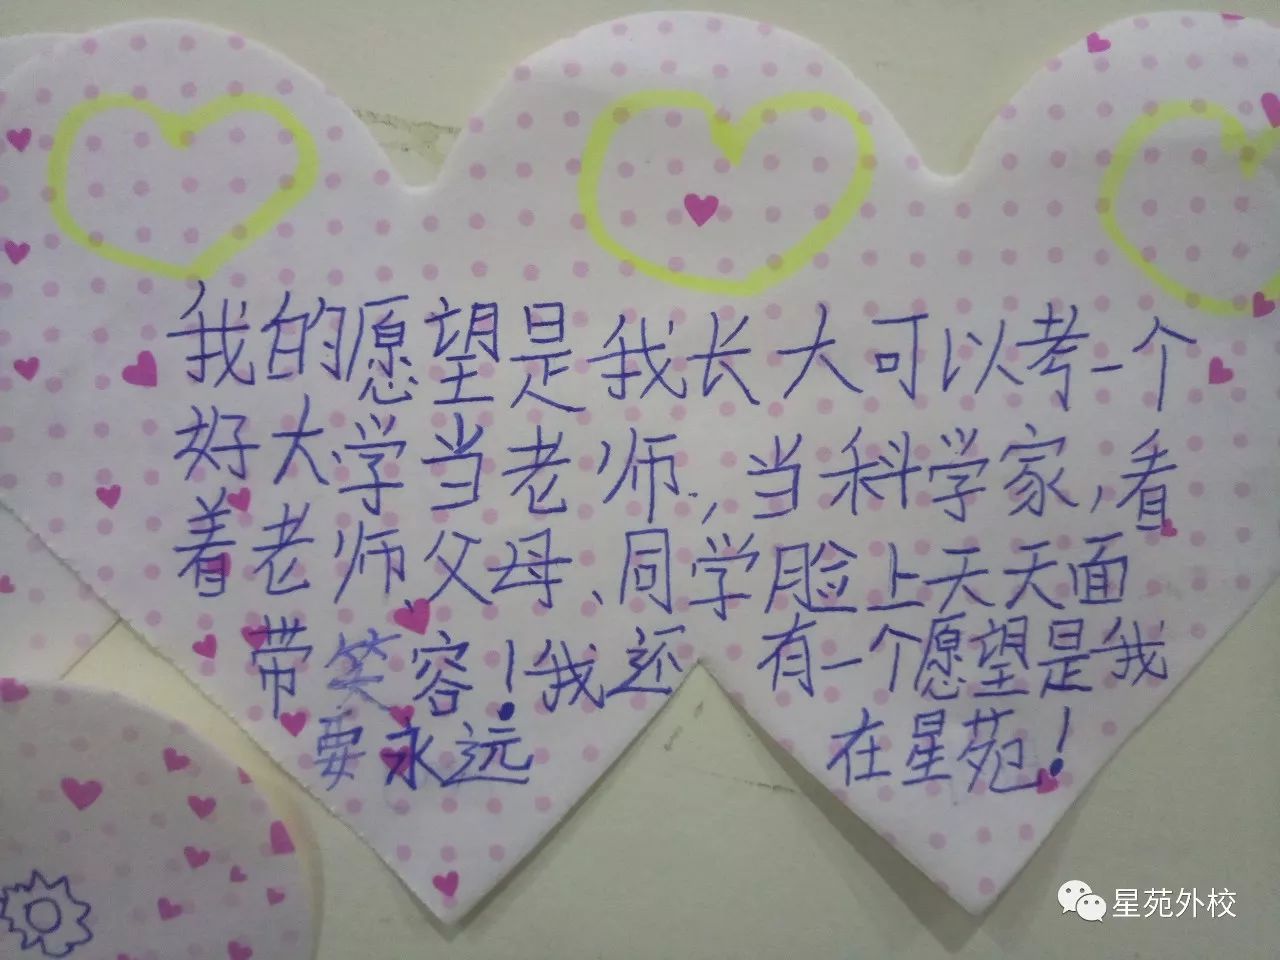 我的愿望是我长大可以考一个
好大学当老师,当科学家,看
着老师、父母、同学脸上天天面
带笑容!我还有一个愿望是我
要永远在星苑!
星苑外校